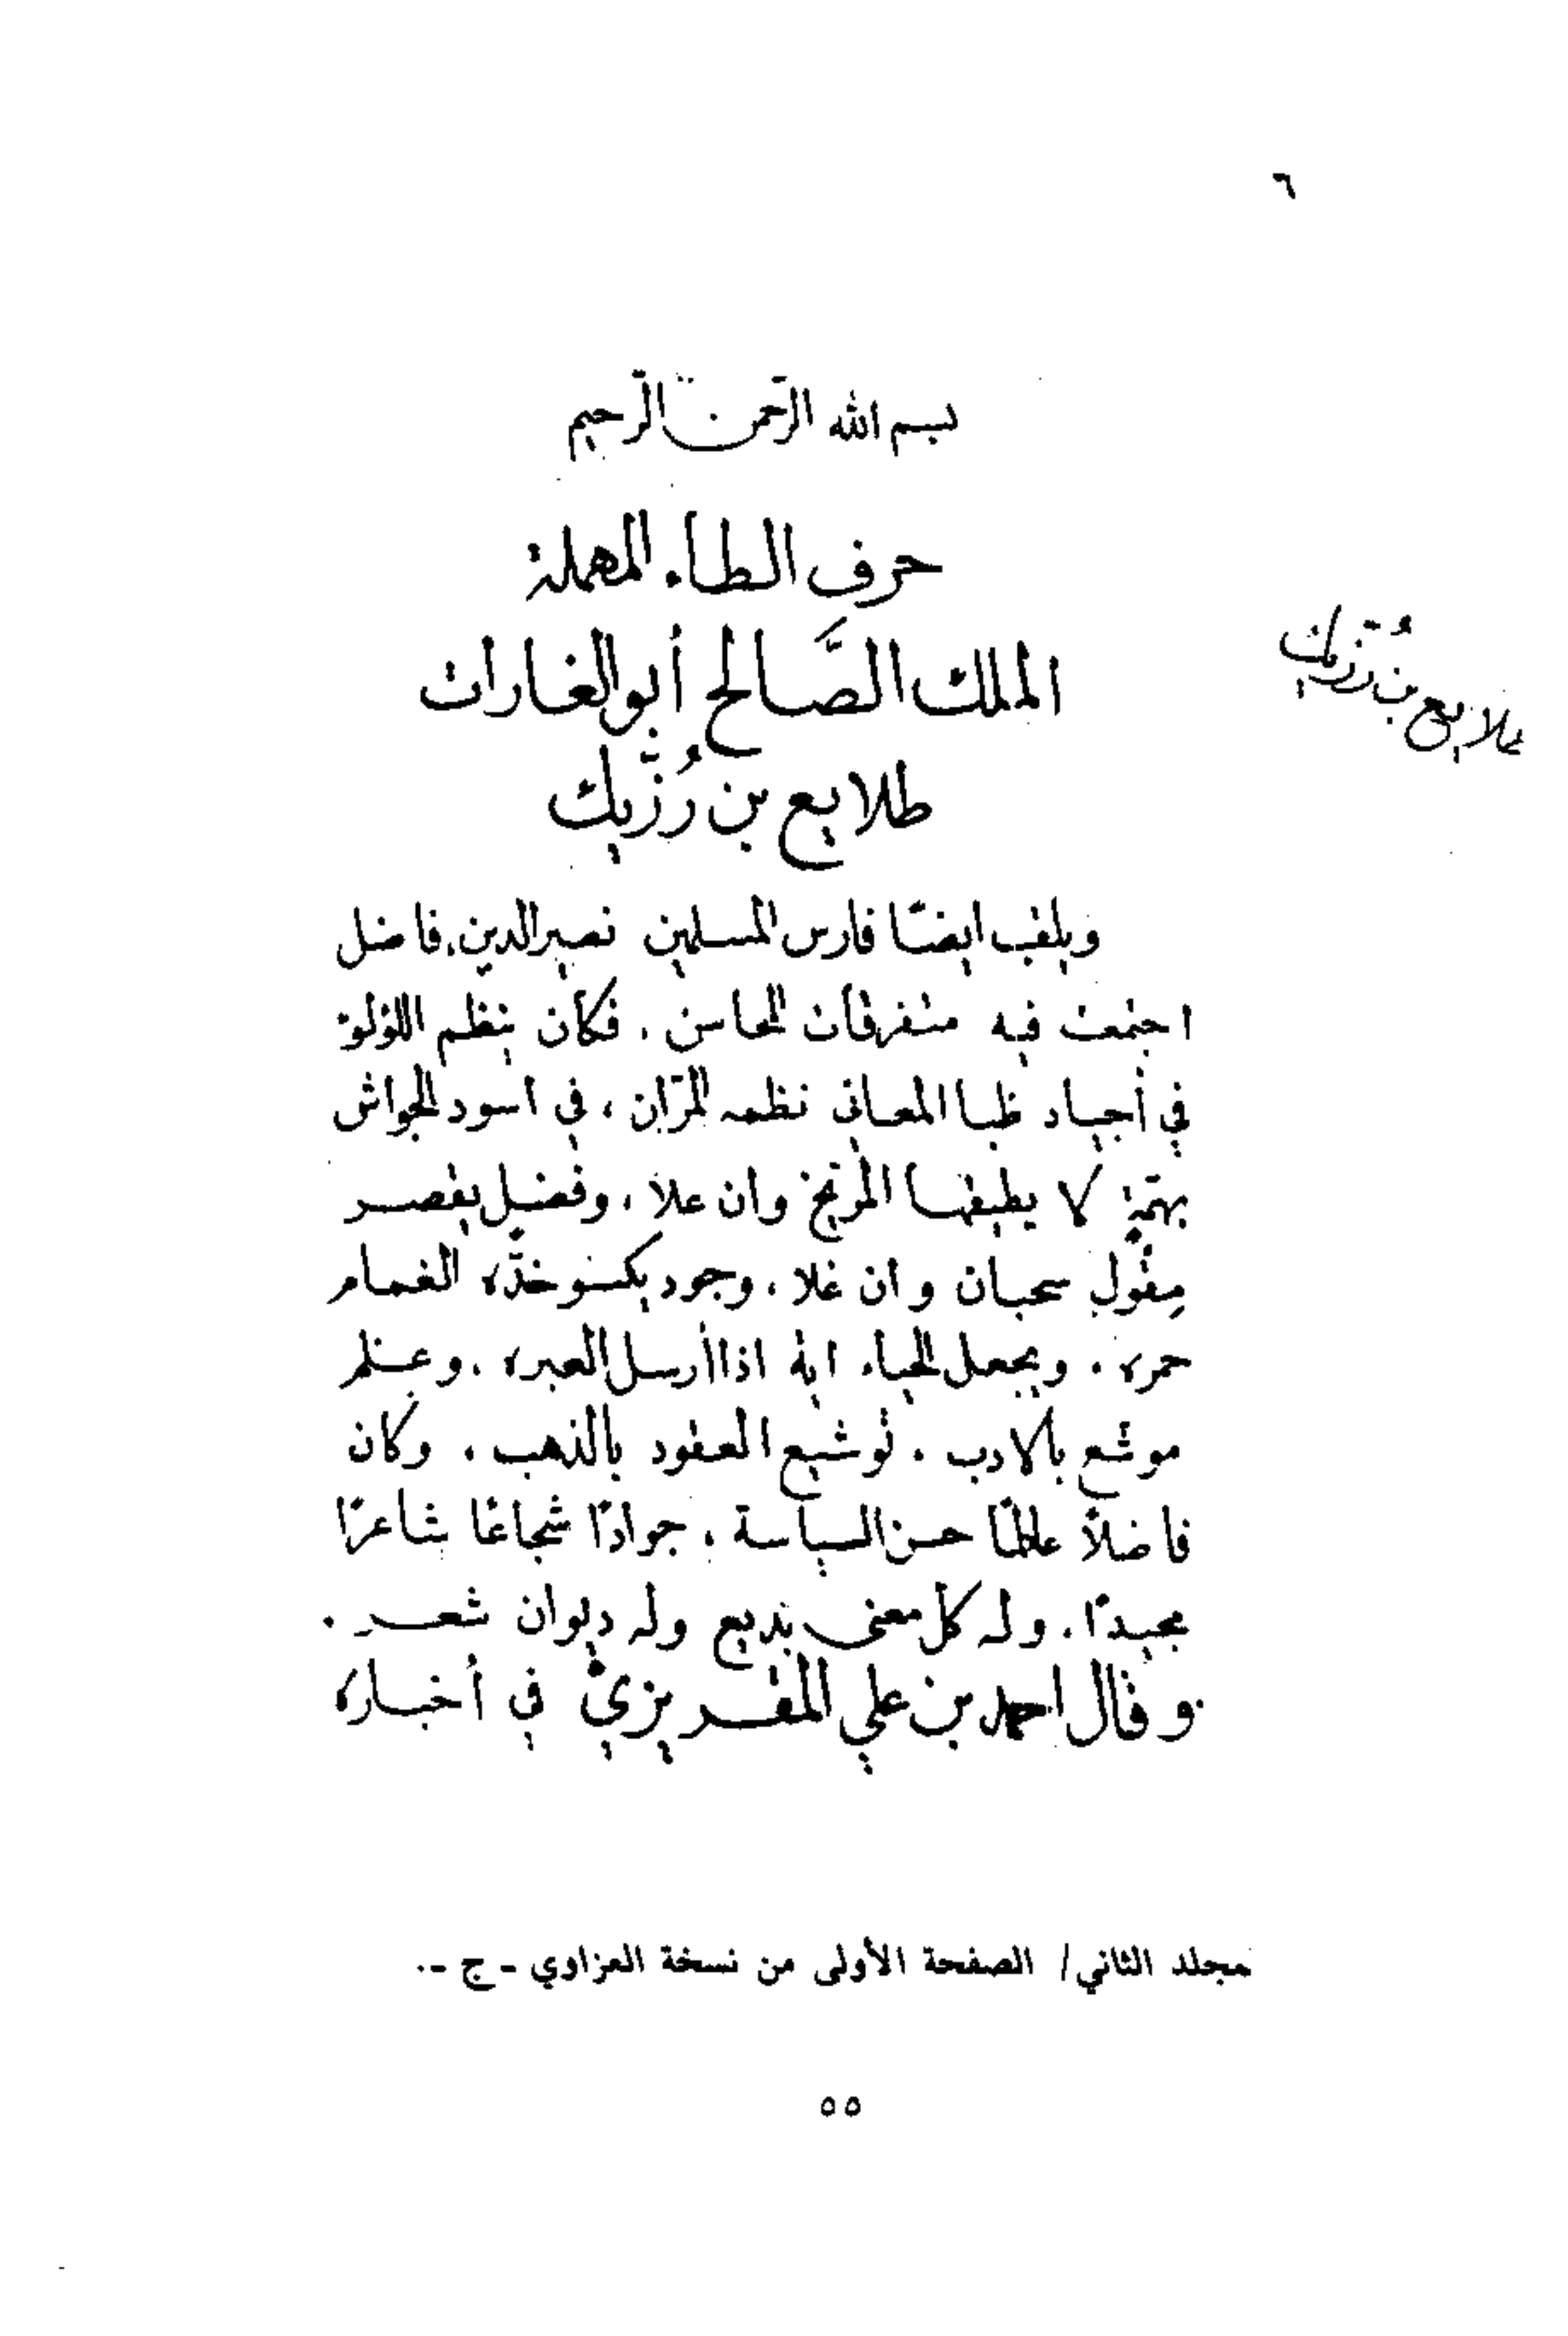 ٦
بسم الله الرحمن الرحيم
حرف الطاء المهملة
الملك الصَّالح أبو الغارات
طلايع بن رُزّيك
طلايع بن رُزّيك
ويلقب ايضًا فارس المسلمين نصير الدين. فاضل
اجتمعت فيه متفرقات المحاسن . فكان ينظم اللؤلؤ
في أجياد ظبا المعاني نظمه المرّان ، في اسود الجواشن
بهمّة لا يطيقها المرّيخ وان علا ، وفضل يقصر
مِقْوَل سحبان وان غلا ، وجود يكسو خدّه الغمام
حمره . ويجعل الحياء اية اذا أرسل العبره . وعلم
موشع بالادب . توشيع العقود بالذهب . وكان
فاضلاً عالمًا حسن السياسة ، جوادًا شجاعًا شاعرًا
مجيدًا . وله كل معنى بديع وله ديوان شعر .
وقال احمد بن علي المقريزيّ في أخباره
مجلد الثاني / الصفحة الأولى من نسخة العزاوي - ج -.
٥٥